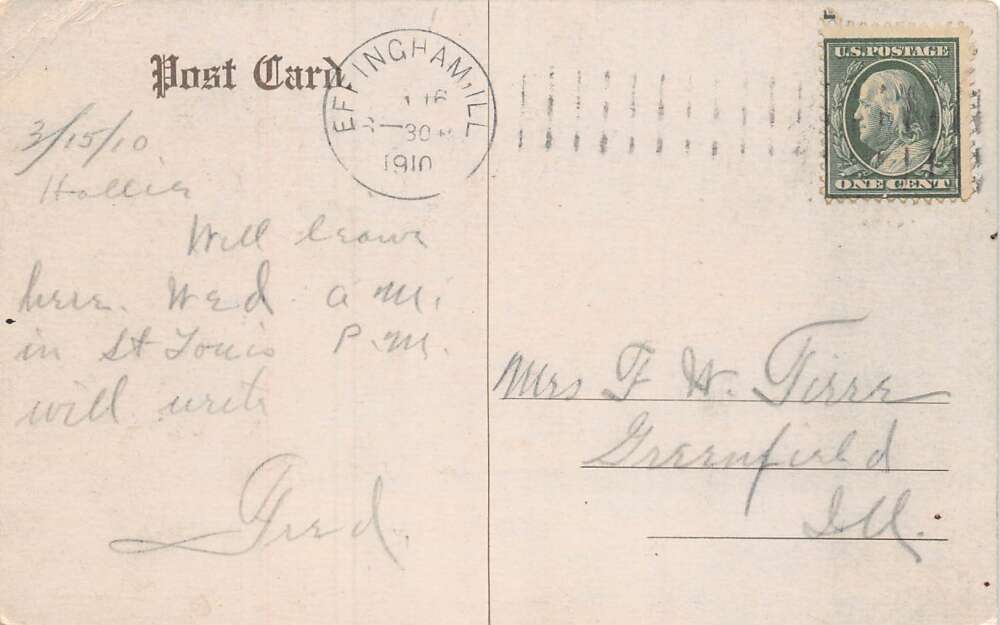 Post Card
EFFINGHAM, ILL
30
1910
U.S. POSTAGE
ONE CENT
3/15/10
Hollie
Will leave
here. Wed. a.m.
in St Louis P.M.
will write
Fred.
Mrs F W. Tirre
Greenfield
Ill.